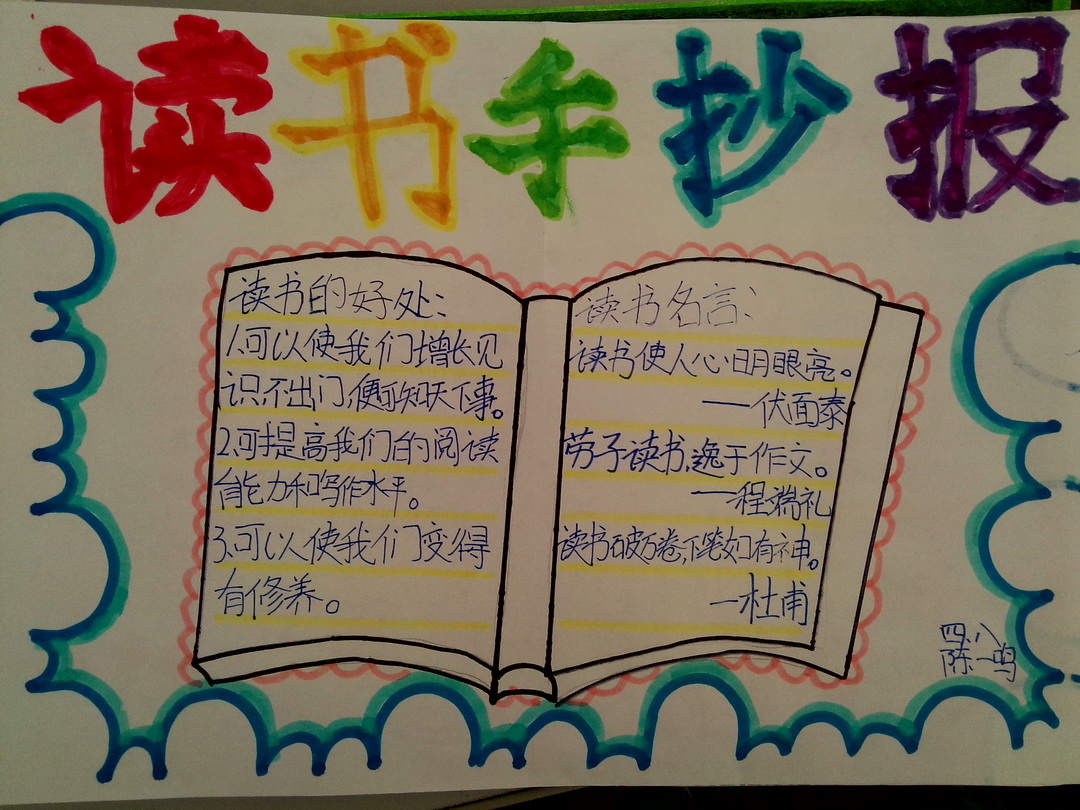 读书手抄报
读书的好处:
1.可以使我们增长见
识,不出门,便可知天下事。
2.可提高我们的阅读
能力和写作水平。
3.可以使我们变得
有修养。
读书名言:
读书使人心明眼亮。
——伏面泰
劳于读书,逸于作文。
——程端礼
读书破万卷,下笔如有神。
—杜甫
四.八
陈一鸣